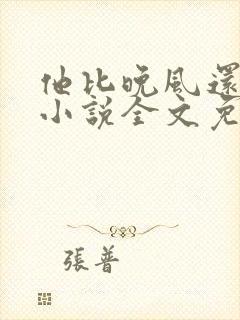 他比晚风還
小説全文免
張普